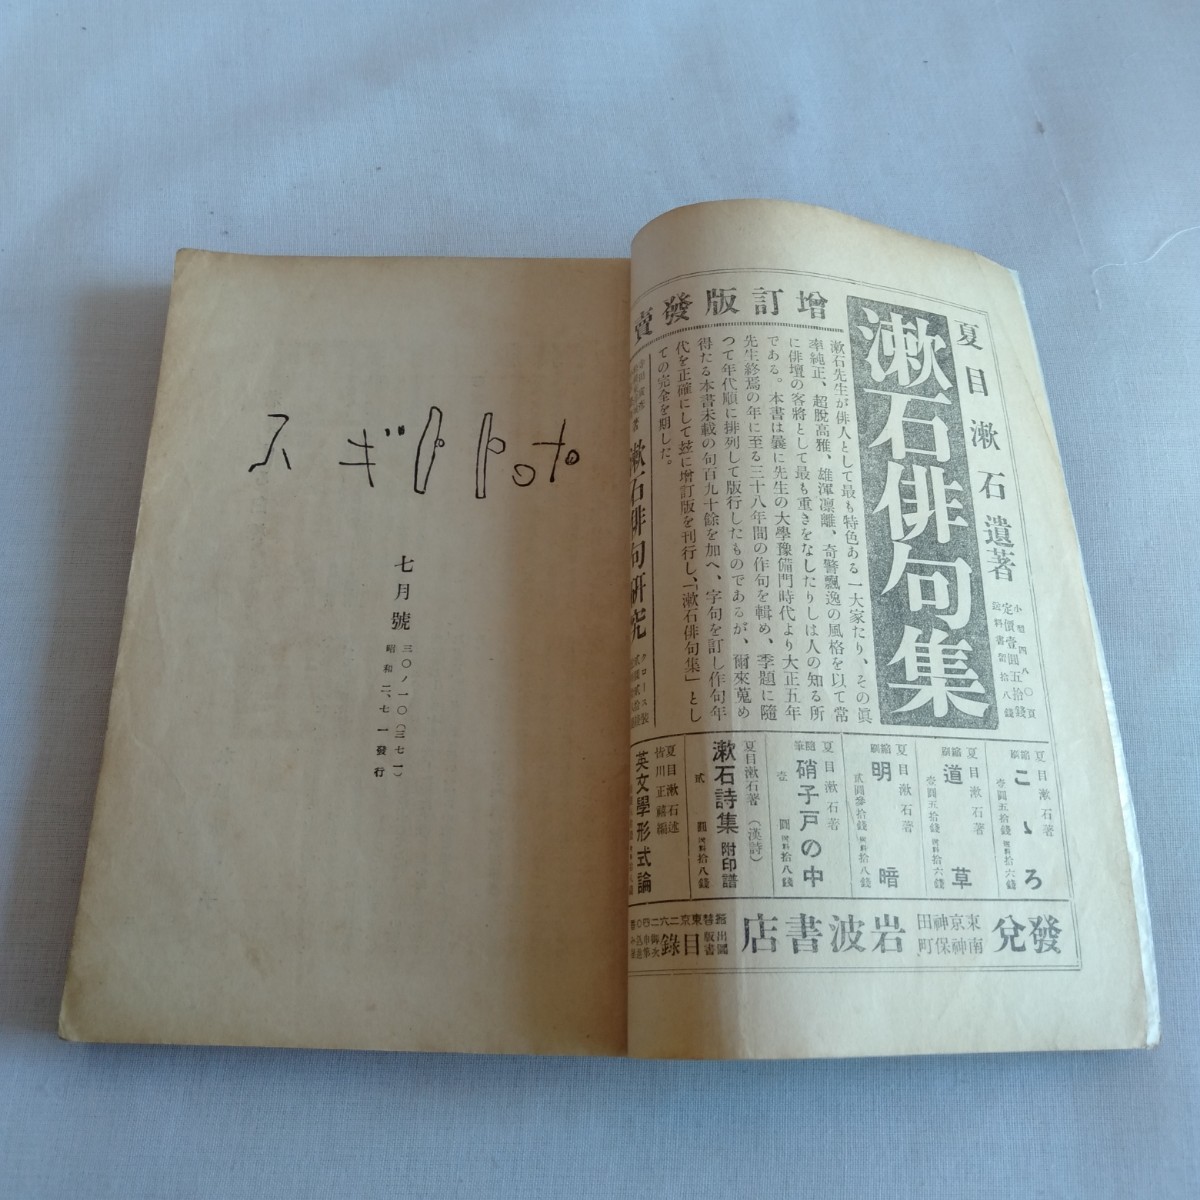 ホトトギス
七月號
三〇ノ一〇(三七一)
昭和二、七 一發行
夏目漱石遺著
漱石俳句集
小型四八〇頁
定價壹圓五拾錢
增訂版發賣
漱石先生が俳人として最も特色ある一大家たり、その眞
率純正、超脫高雅、雄渾凛離、奇警飄逸の風格を以て常
に俳壇の客將として最も重きをなしたりしは人の知る所
である。本書は曩に先生の大學豫備門時代より大正五年
先生終焉の年に至る三十八年間の作句を輯め、季題に隨
つて年代順に排列して版行したものであるが、爾來蒐め
得たる本書未載の句百九十餘を加へ、字句を訂し作句年
代を正確にして玆に增訂版を刊行し、「漱石俳句集」とし
ての完全を期した。
漱石俳句硏究
夏目漱石著
縮刷 こゝろ
壹圓五拾錢 送料拾六錢
夏目漱石著
縮刷 道草
壹圓五拾錢 送料拾六錢
夏目漱石著
縮刷 明暗
貳圓參拾錢 送料拾八錢
夏目漱石著
隨筆 硝子戶の中
壹圓 送料拾八錢
夏目漱石著(漢詩)
漱石詩集 附印譜
貳圓 送料拾八錢
夏目漱石述
皆川正禧編
英文學形式論
發兌
東京神田
南神保町
岩波書店
振替東京二六二四〇番